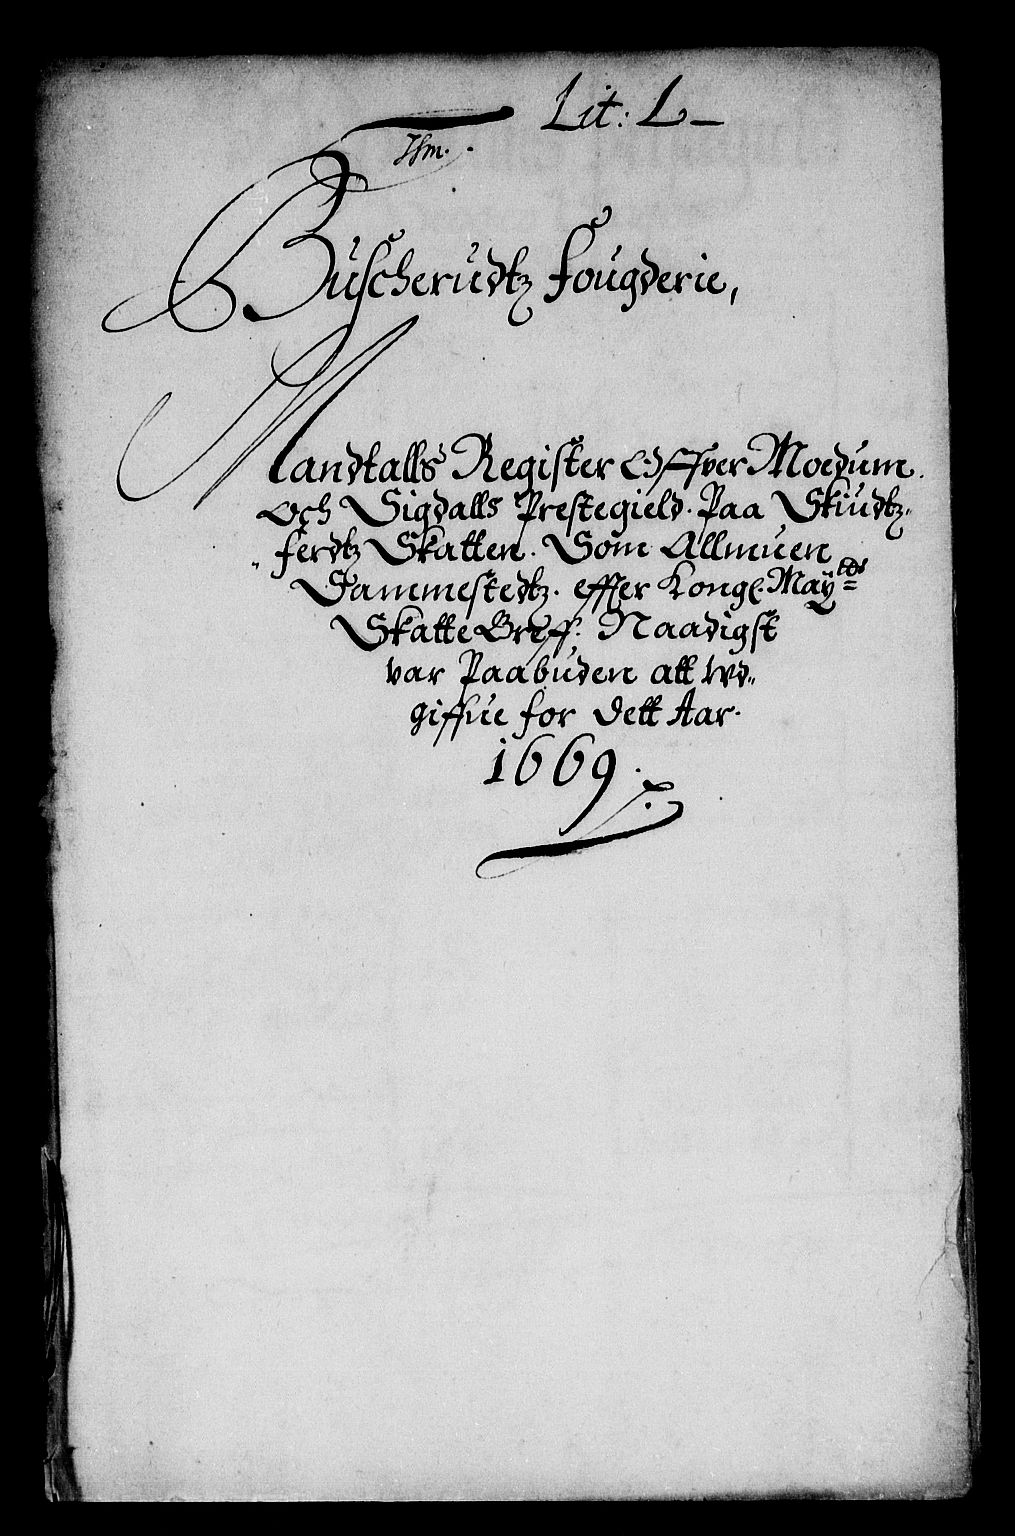 Lit: L
Buscherudtz Fougderie,
Mandtalls Register Offver Moedum
och Sigdalls Prestegield. Paa Skiudtz„
„ferdtz Skatten. Som Allmuen
Sammestedtz. effter Kongl. Maÿtts
Skatte Breff. Naadigst
var Paabuden att wd„
giffue for dett Aar.
1669.